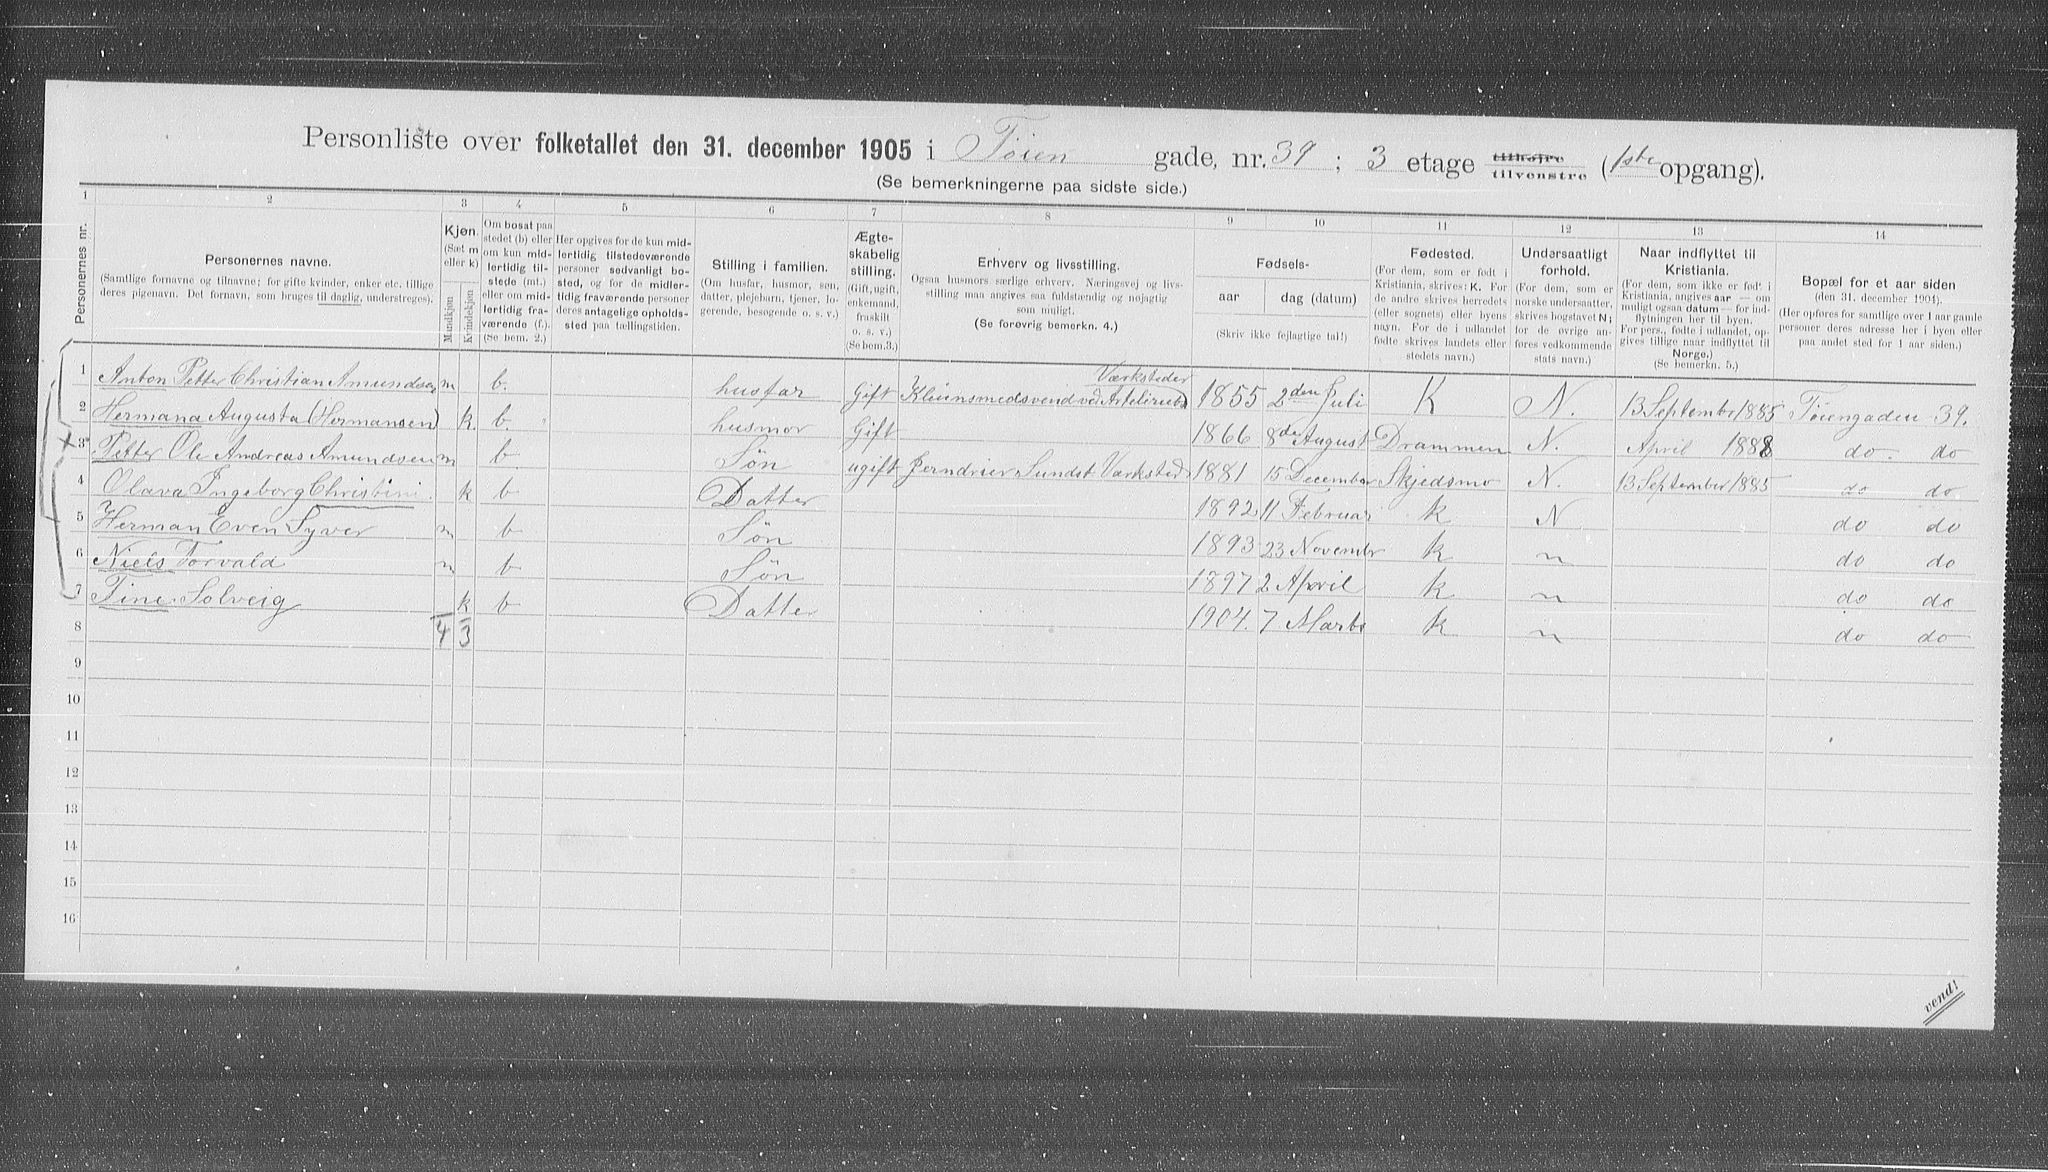 Personliste over folketallet den 31. december 1905 i Töien gade, nr. 39 ; 3 etage tilhøjre tilvenstre (1ste opgang).
(Se bemerkningerne paa sidste side.)
1 2 3 4 5 6 7 8 9 10 11 12 13 14
Personernes nr.
Personernes navne.
(Samtlige fornavne og tilnavne; for gifte kvinder, enker etc. tillige
deres pigenavn. Det fornavn, som bruges til daglig, understreges).
Kjøn.
(Sæt m
eller k)
Mandkjøn
Kvindekjøn
Om bosat paa
stedet (b) eller
om kun mid-
lertidig til-
stede (mt.)
eller om mid-
lertidig fra-
værende (f.).
(Se bem. 2.)
Her opgives for de kun mid-
lertidig tilstedeværende
personer sedvanligt bo-
sted, og for de midler-
tidig fraværende personer
deres antagelige opholds-
sted paa tællingstiden.
Stilling i familien.
(Om husfar, husmor, søn,
datter, plejebarn, tjener, lo-
gerende, besøgende o. s. v.)
Ægte-
skabelig
stilling.
(Gift, ugift,
enkemand,
fraskilt
o. s. v.)
(Se bem. 3.)
Erhverv og livsstilling.
Ogsaa husmors særlige erhverv. Næringsvej og livs-
stilling maa angives saa fuldstændig og nøjagtig
som muligt.
(Se forøvrig bemerkn. 4.)
Fødsels-
aar dag (datum)
(Skriv ikke fejlagtige tal!)
Fødested.
(For dem, som er født i
Kristiania, skrives: K. For
de andre skrives herredets
(eller sognets) eller byens
navn. For de i udlandet
fødte skrives landets eller
stedets navn.)
Undersaatligt
forhold.
(For dem, som er
norske undersaatter,
skrives bogstavet N;
for de øvrige an-
føres vedkommende
stats navn.)
Naar indflyttet til
Kristiania.
(For dem, som ikke er fød' i
Kristiania, angives aar — om
muligt ogsaa datum — for ind-
flytningen her til byen.
For pers., fødte i udlandet, op-
gives tillige naar indflyttet til
Norge.)
(Se bemerkn. 5.)
Bopæl for et aar siden
(den 31. december 1904).
(Her opføres for samtlige over 1 aar gamle
personer deres adresse her i byen eller
paa andet sted for 1 aar siden.)
1 Anton Petter Christian Amundsen m b. husfar Gift Kleinsmedsvend ved Værksteder 1855 2den Juli K N. 13 September 1885 Töiengaden 39.
2 Hermana Augusta (Hermansen) k. b. husmor Gift 1866 8de August Drammen N. April 1888 do. do
3 Petter Ole Andreas Amundsen m b. Søn ugift Jerndreier Sundet Værksted 1881 15 December Skjedsmo N. 13 September 1885 do do
4 Olava Ingeborg Christini k b Datter 1892 11 Februar K N do do
5 Herman Even Syver m b Søn 1893 23 Novembr K n do do
6 Niels Torvald m b Søn 1897 2 April K n do do
7 Tine Solveig k b Datter 1904. 7 Marts K n do do
8 4 3
9
10
11
12
13
14
15
16
vend!